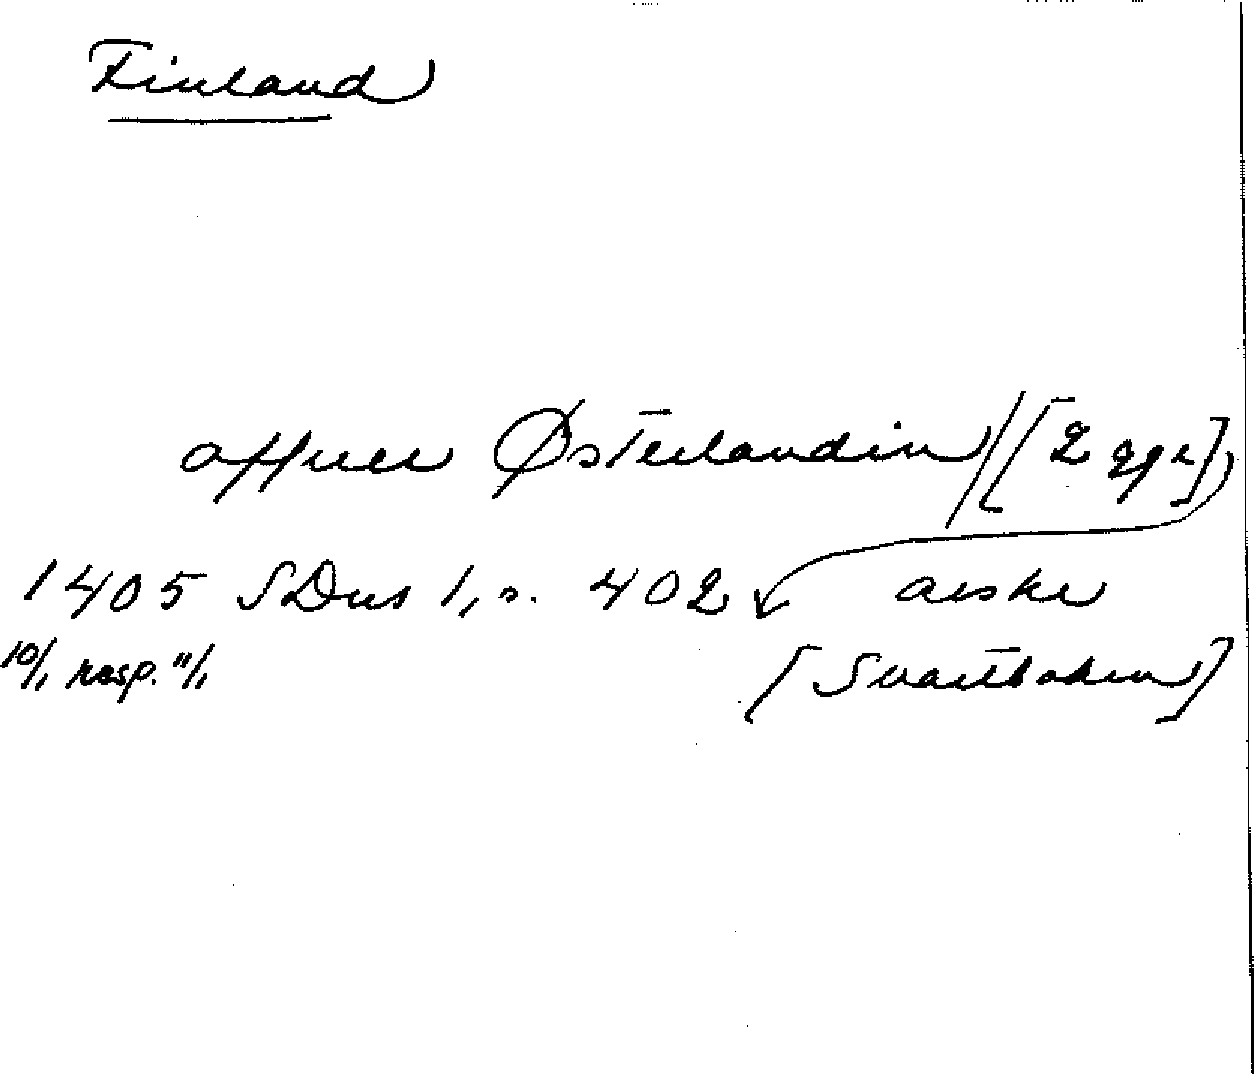 Finland
offuer Østerlandin/[2 ggr]
1405 SDns 1, s. 402 arske
10/1 resp. 11/1 [Svartboken]